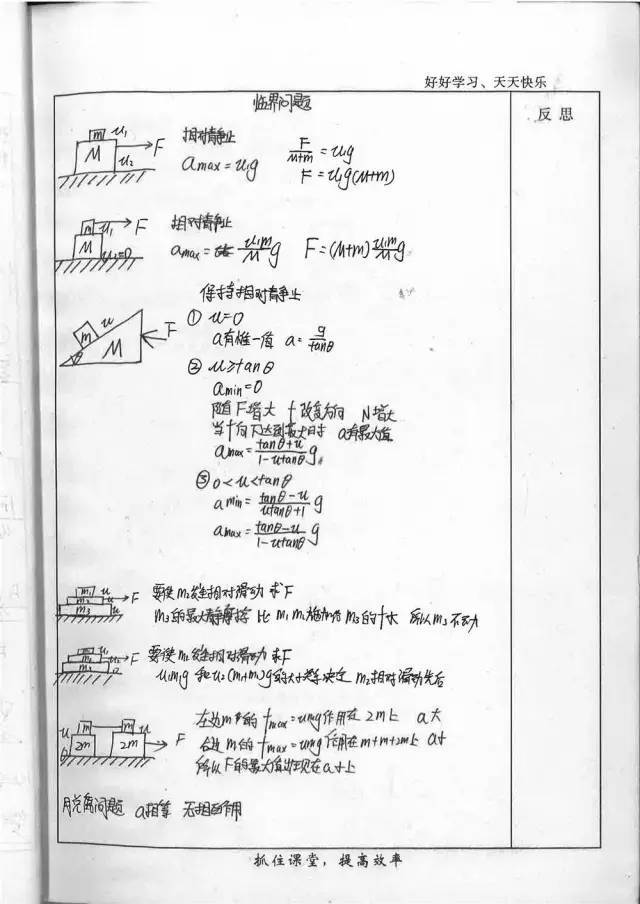 好好学习、天天快乐
反思
临界问题
m u₁ F
M u₂
相对静止
amax = u₁g
F/(M+m) = u₁g
F = u₁g(M+m)
m u₁ F
M u₂=0
相对静止
amax = u₁m/M g F = (M+m) u₁m/M g
保持相对静止
m u F
M θ
① u=0
a有唯一值 a = g/tanθ
② u≥tanθ
amin=0
随F增大 f改变方向 N增大
当f向下达到最大时 a有最大值
amax = (tanθ+u)/(1-utanθ) g
③ 0<u<tanθ
amin = (tanθ-u)/(utanθ+1) g
amax = (tanθ-u)/(1-utanθ) g
m₁ u F
m₂ u
m₃ u
要使m₂发生相对滑动 求F
m₃的最大静摩擦 比m₁ m₂施加给m₃的f大 所以m₃不动
F
要使m₂发生相对滑动 求F
u₁m₁g 和u₂(m₁+m₂)g的大小关系决定 m₂相对滑动先后
m m u F
u 2m 2m
左边m的fmax=umg作用在2m上 a大
右边m的fmax=umg作用在m+m+2m上 a小
所以F的最大值出现在a小上
脱离问题 a相等 无相互作用
抓住课堂，提高效率